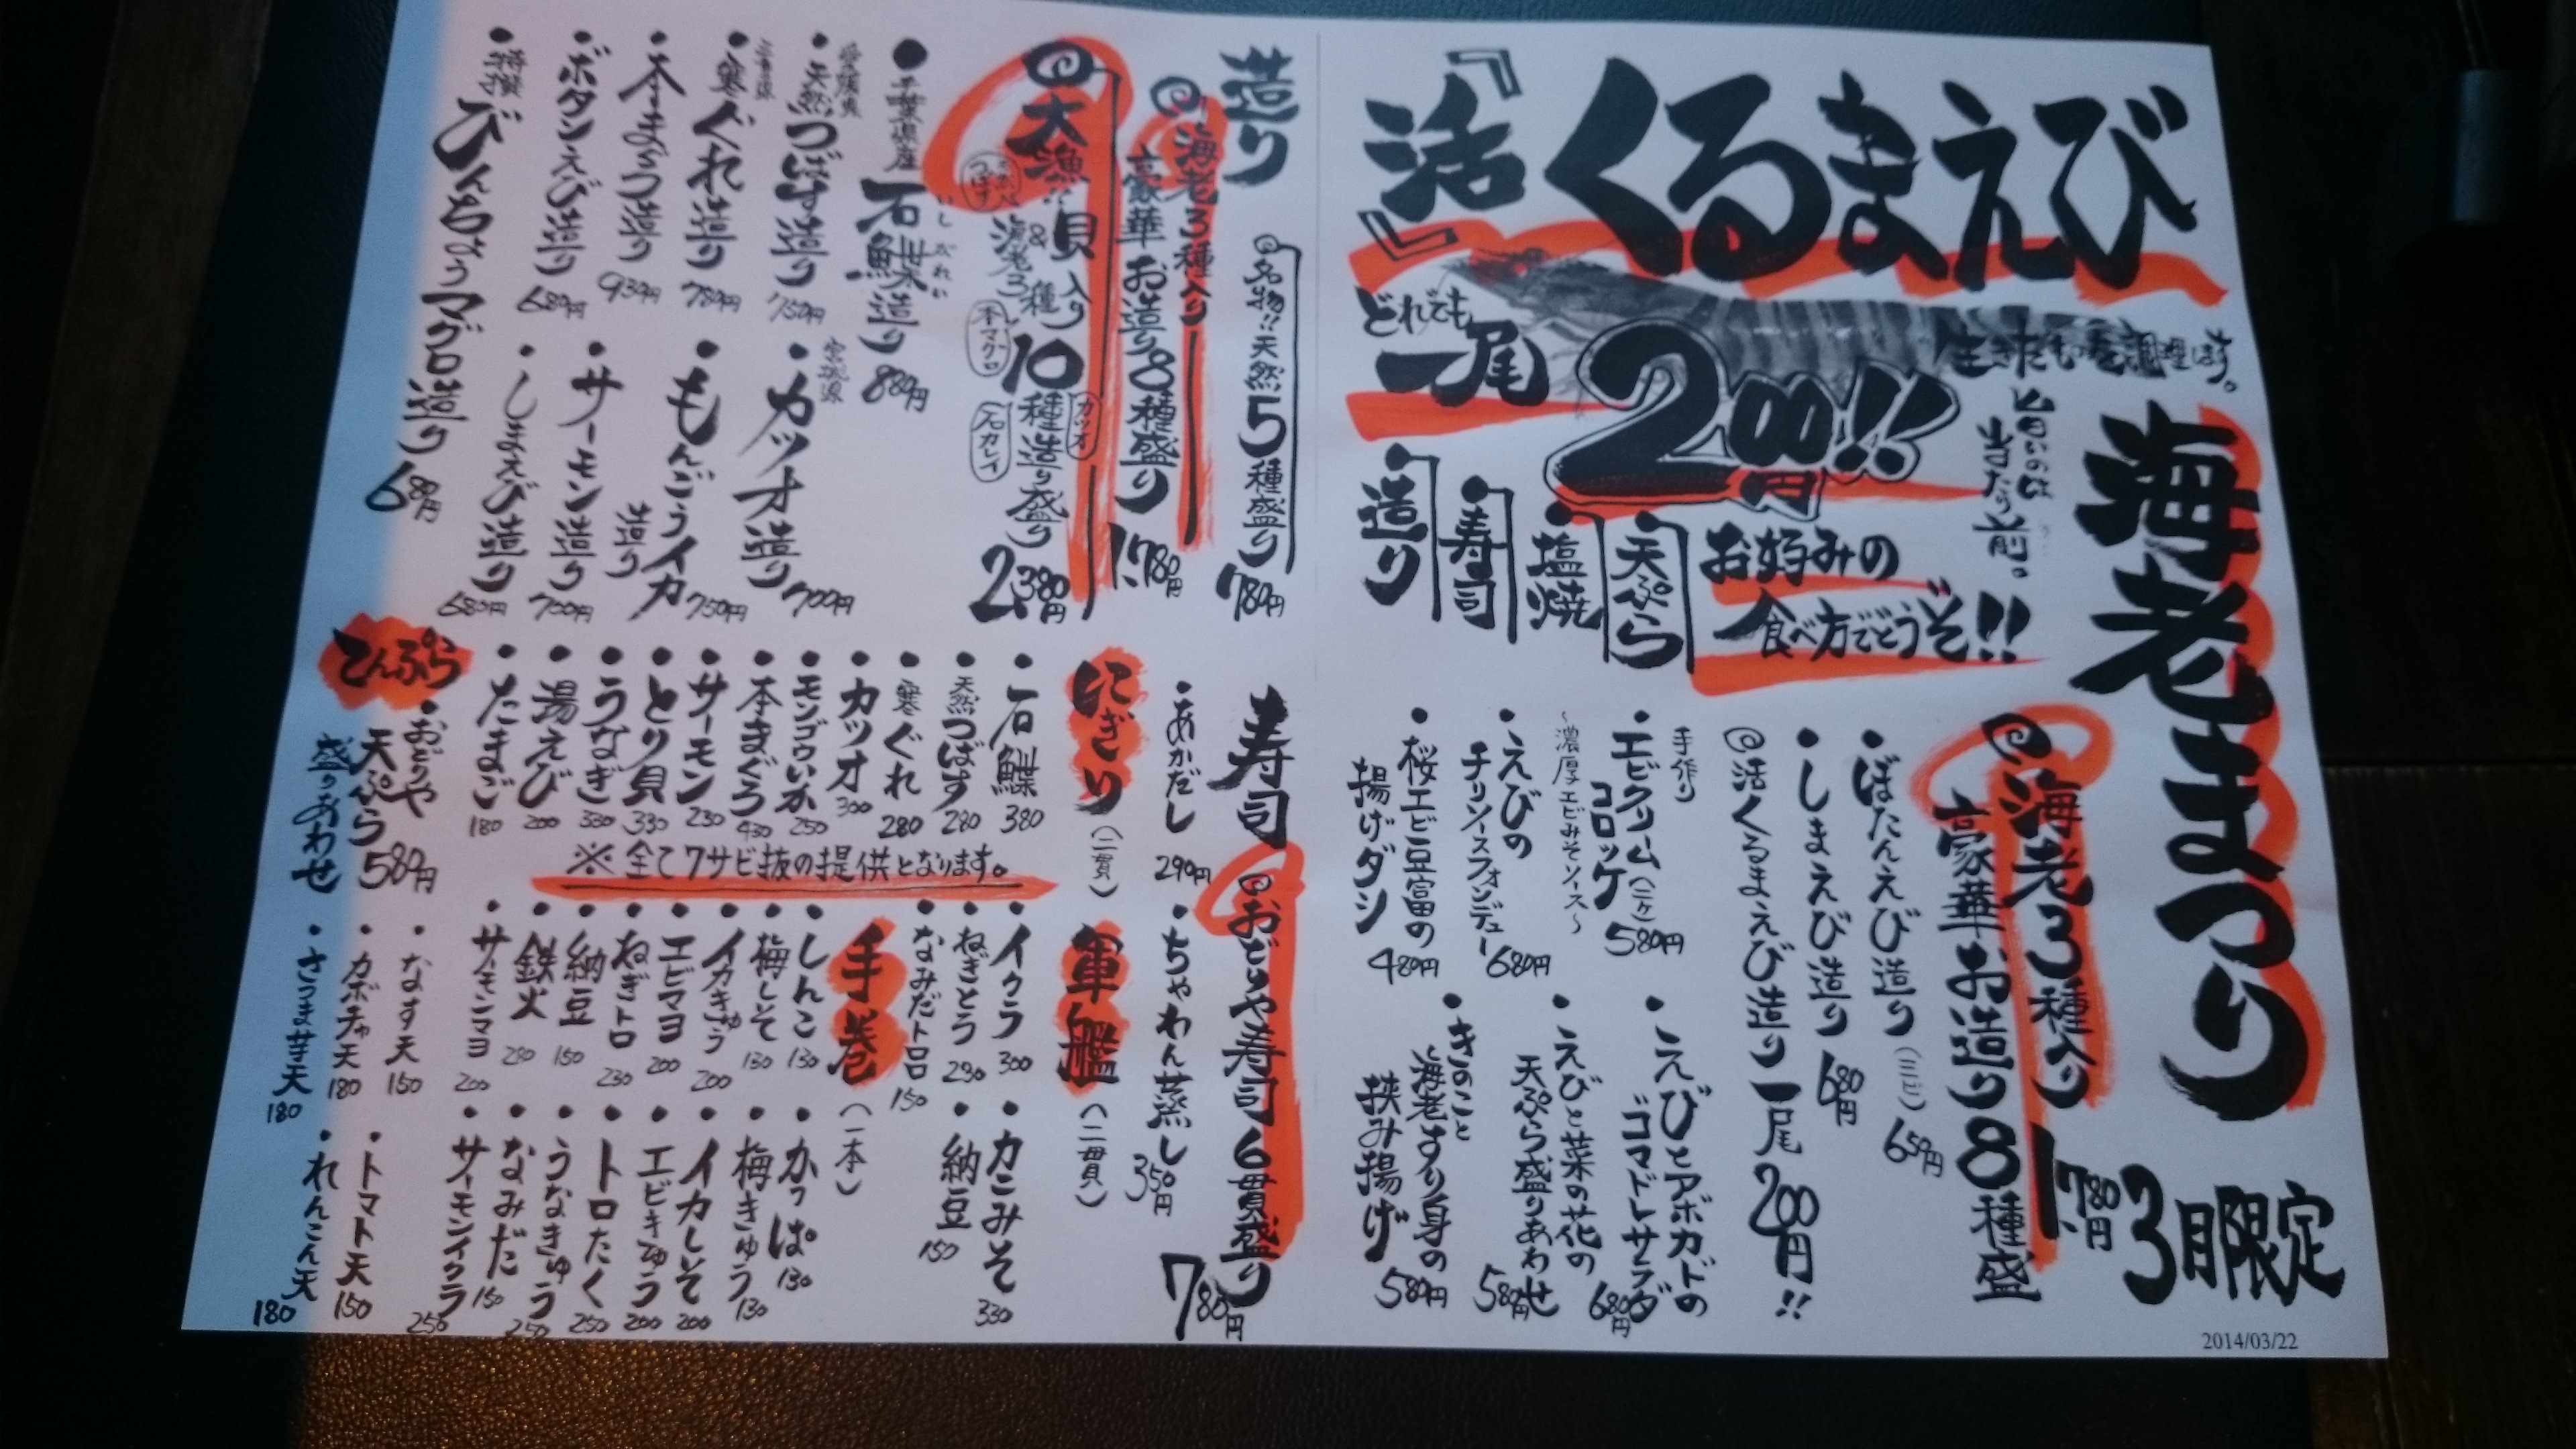 『活』くるまえび
生きたものを調理します。
どれでも
一尾
200円!!
旨いのは
当たり前。
お好みの
食べ方でどうぞ!!
天ぷら
塩焼
寿司
造り
海老まつり
3日限定
海老3種入り
豪華お造り8種盛
1,780円
・ぼたんえび造り
650円
・しまえび造り 680円
活くるまえび造り一尾 200円!!
手作り
・エビクリーム(二ケ)
コロッケ 580円
~濃厚エビみそソース~
・えびの
チリソースフォンデュー 680円
・桜エビ豆富の
揚げダシ 480円
・えびとアボカドの
ゴマドレサラダ 680円
・えびと菜の花の
天ぷら盛りあわせ 580円
・きのこと
海老すり身の
挟み揚げ 580円
造り
名物!!天然5種盛り 780円
海老3種入り
豪華お造り8種盛り 1,780円
大漁!!貝入り10種造り盛り 2,380円
&海老3種
つばす
本マグロ
カツオ
石カレイ
・千葉県産 石鰈造り 880円
いしがれい
愛媛県
・天然つばす造り 750円
三重県
・寒ぐれ造り 780円
・本まぐろ造り 930円
・ボタンえび造り 680円
・特撰びんちょうマグロ造り 680円
宮城県
・カツオ造り 700円
・もんごうイカ
造り 750円
・サーモン造り 700円
・しまえび造り 680円
寿司
おどりや寿司6貫盛り 780円
・あかだし 290円
・ちゃわん蒸し 350円
にぎり(二貫)
・石鰈 380
・天然つばす 280
・寒ぐれ 280
・カツオ 300
・モンゴウいか 250
・本まぐろ 430
・サーモン 230
・とり貝 330
・うなぎ 330
・湯えび 200
・たまご 180
※全てワサビ抜の提供となります。
軍艦(二貫)
・イクラ 300
・ねぎとろ 230
・なみだトロ 150
・カニみそ 330
・納豆 150
手巻(一本)
・しんこ 130
・梅しそ 130
・イカきゅう 200
・エビマヨ 200
・ねぎトロ 230
・納豆 150
・鉄火 280
・サーモンマヨ 200
・かっぱ 130
・梅きゅう 130
・イカしそ 200
・エビきゅう 200
・トロたく 250
・うなきゅう 250
・なみだ 150
・サーモンイクラ 250
てんぷら
・おどりや
天ぷら 580円
盛りあわせ
・なす天 150
・カボチャ天 180
・さつま芋天 180
・トマト天 150
・れんこん天 180
2014/03/22